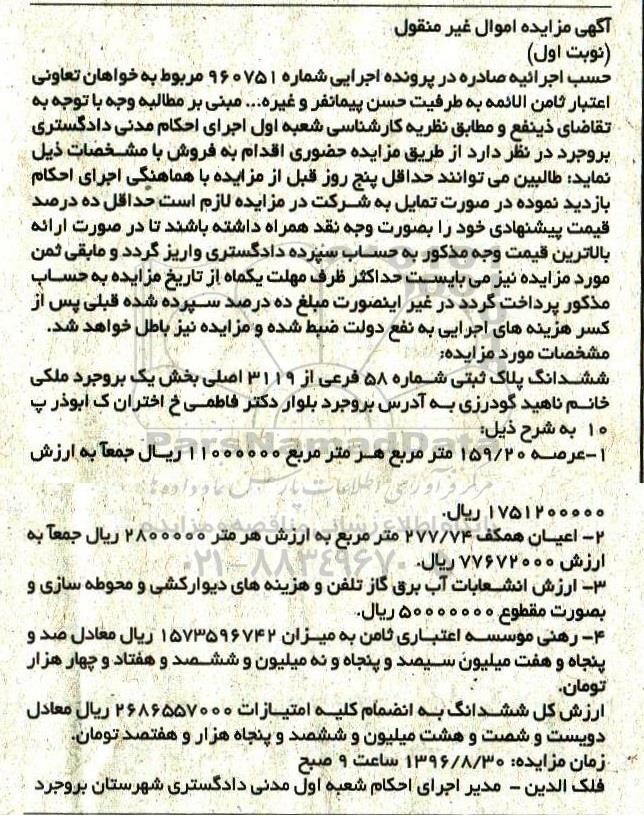 آگهی مزایده اموال غیر منقول
(نوبت اول)
حسب اجرائیه صادره در پرونده اجرایی شماره ۹۶۰۷۵۱ مربوط به خواهان تعاونی
اعتبار ثامن الائمه به طرفیت حسن پیمانفر و غیره... مبنی بر مطالبه وجه با توجه به
تقاضای ذینفع و مطابق نظریه کارشناسی شعبه اول اجرای احکام مدنی دادگستری
بروجرد در نظر دارد از طریق مزایده حضوری اقدام به فروش با مشخصات ذیل
نماید: طالبین می توانند حداقل پنج روز قبل از مزایده با هماهنگی اجرای احکام
بازدید نموده در صورت تمایل به شرکت در مزایده لازم است حداقل ده درصد
قیمت پیشنهادی خود را بصورت وجه نقد همراه داشته باشند تا در صورت ارائه
بالاترین قیمت وجه مذکور به حساب سپرده دادگستری واریز گردد و مابقی ثمن
مورد مزایده نیز می بایست حداکثر ظرف مهلت یکماه از تاریخ مزایده به حساب
مذکور پرداخت گردد در غیر اینصورت مبلغ ده درصد سپرده شده قبلی پس از
کسر هزینه های اجرایی به نفع دولت ضبط شده و مزایده نیز باطل خواهد شد.
مشخصات مورد مزایده:
ششدانگ پلاک ثبتی شماره ۵۸ فرعی از ۳۱۱۹ اصلی بخش یک بروجرد ملکی
خانم ناهید گودرزی به آدرس بروجرد بلوار دکتر فاطمی خ اختران ک ابوذر پ
۱۰ به شرح ذیل:
۱-عرصه ۱۵۹/۲۰ متر مربع هر متر مربع ۱۱۰۰۰۰۰۰ ریال جمعاً به ارزش
۱۷۵۱۲۰۰۰۰۰ ریال.
۲- اعیان همکف ۲۷۷/۷۴ متر مربع به ارزش هر متر ۲۸۰۰۰۰۰ ریال جمعاً به
ارزش ۷۷۶۷۲۰۰۰ ریال.
۳- ارزش انشعابات آب برق گاز تلفن و هزینه های دیوارکشی و محوطه سازی و
بصورت مقطوع ۵۰۰۰۰۰۰۰ ریال.
۴- رهنی موسسه اعتباری ثامن به میزان ۱۵۷۳۵۹۶۷۴۲ ریال معادل صد و
پنجاه و هفت میلیون سیصد و پنجاه و نه میلیون و ششصد و هفتاد و چهار هزار
تومان.
ارزش کل ششدانگ به انضمام کلیه امتیازات ۲۶۸۶۵۵۷۰۰۰ ریال معادل
دویست و شصت و هشت میلیون و ششصد و پنجاه هزار و هفتصد تومان.
زمان مزایده: ۱۳۹۶/۸/۳۰ ساعت ۹ صبح
فلک الدین - مدیر اجرای احکام شعبه اول مدنی دادگستری شهرستان بروجرد
ParsNamadData
مرکز فرآوری اطلاعات پارس نماد داده ها
پایگاه اطلاع رسانی مناقصه و مزایده
۰۲۱-۸۸۳۴۹۶۷۰